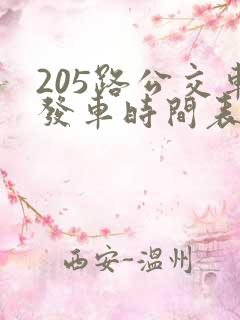 205路公交車
發車時間表
西安-温州